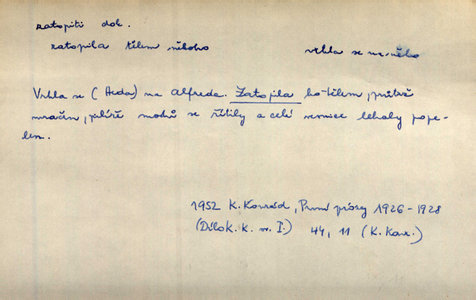 zatopiti dok.
zatopila tělem někoho vrhla se na něho
Vrhla se (Heda) na Alfreda. Zatopila ho tělem, průtrž
mračen, paláře modrů se řítily a celé vesnice lehaly pope-
lem.
1952 K. Konrád, První prózy 1926-1928
(Dílo K. K. sv. I.) 44, 11 (K. Kon.)